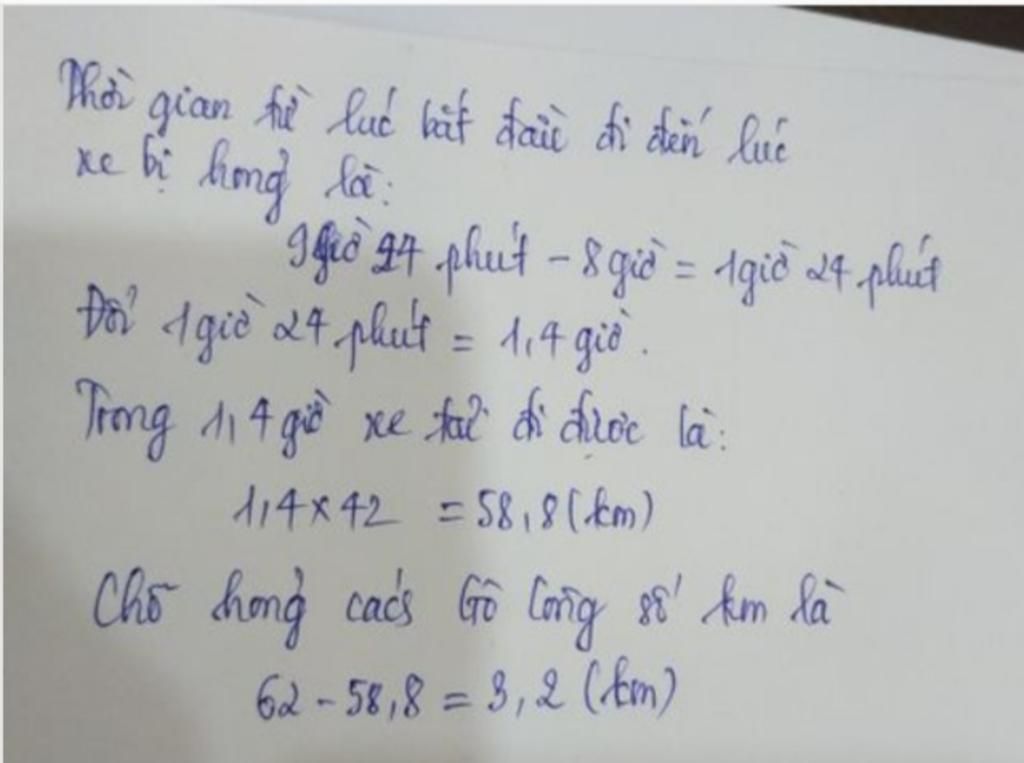 Thời gian từ lúc bắt đầu đi đến lúc
xe bị hỏng là:
9giờ 24 phút - 8 giờ = 1giờ 24 phút
Đổi 1giờ 24 phút = 1,4 giờ.
Trong 1,4 giờ xe tải đi được là:
1,4 x 42 = 58,8 (km)
Chỗ hỏng cács Gò Công số km là
62 - 58,8 = 3,2 (km)